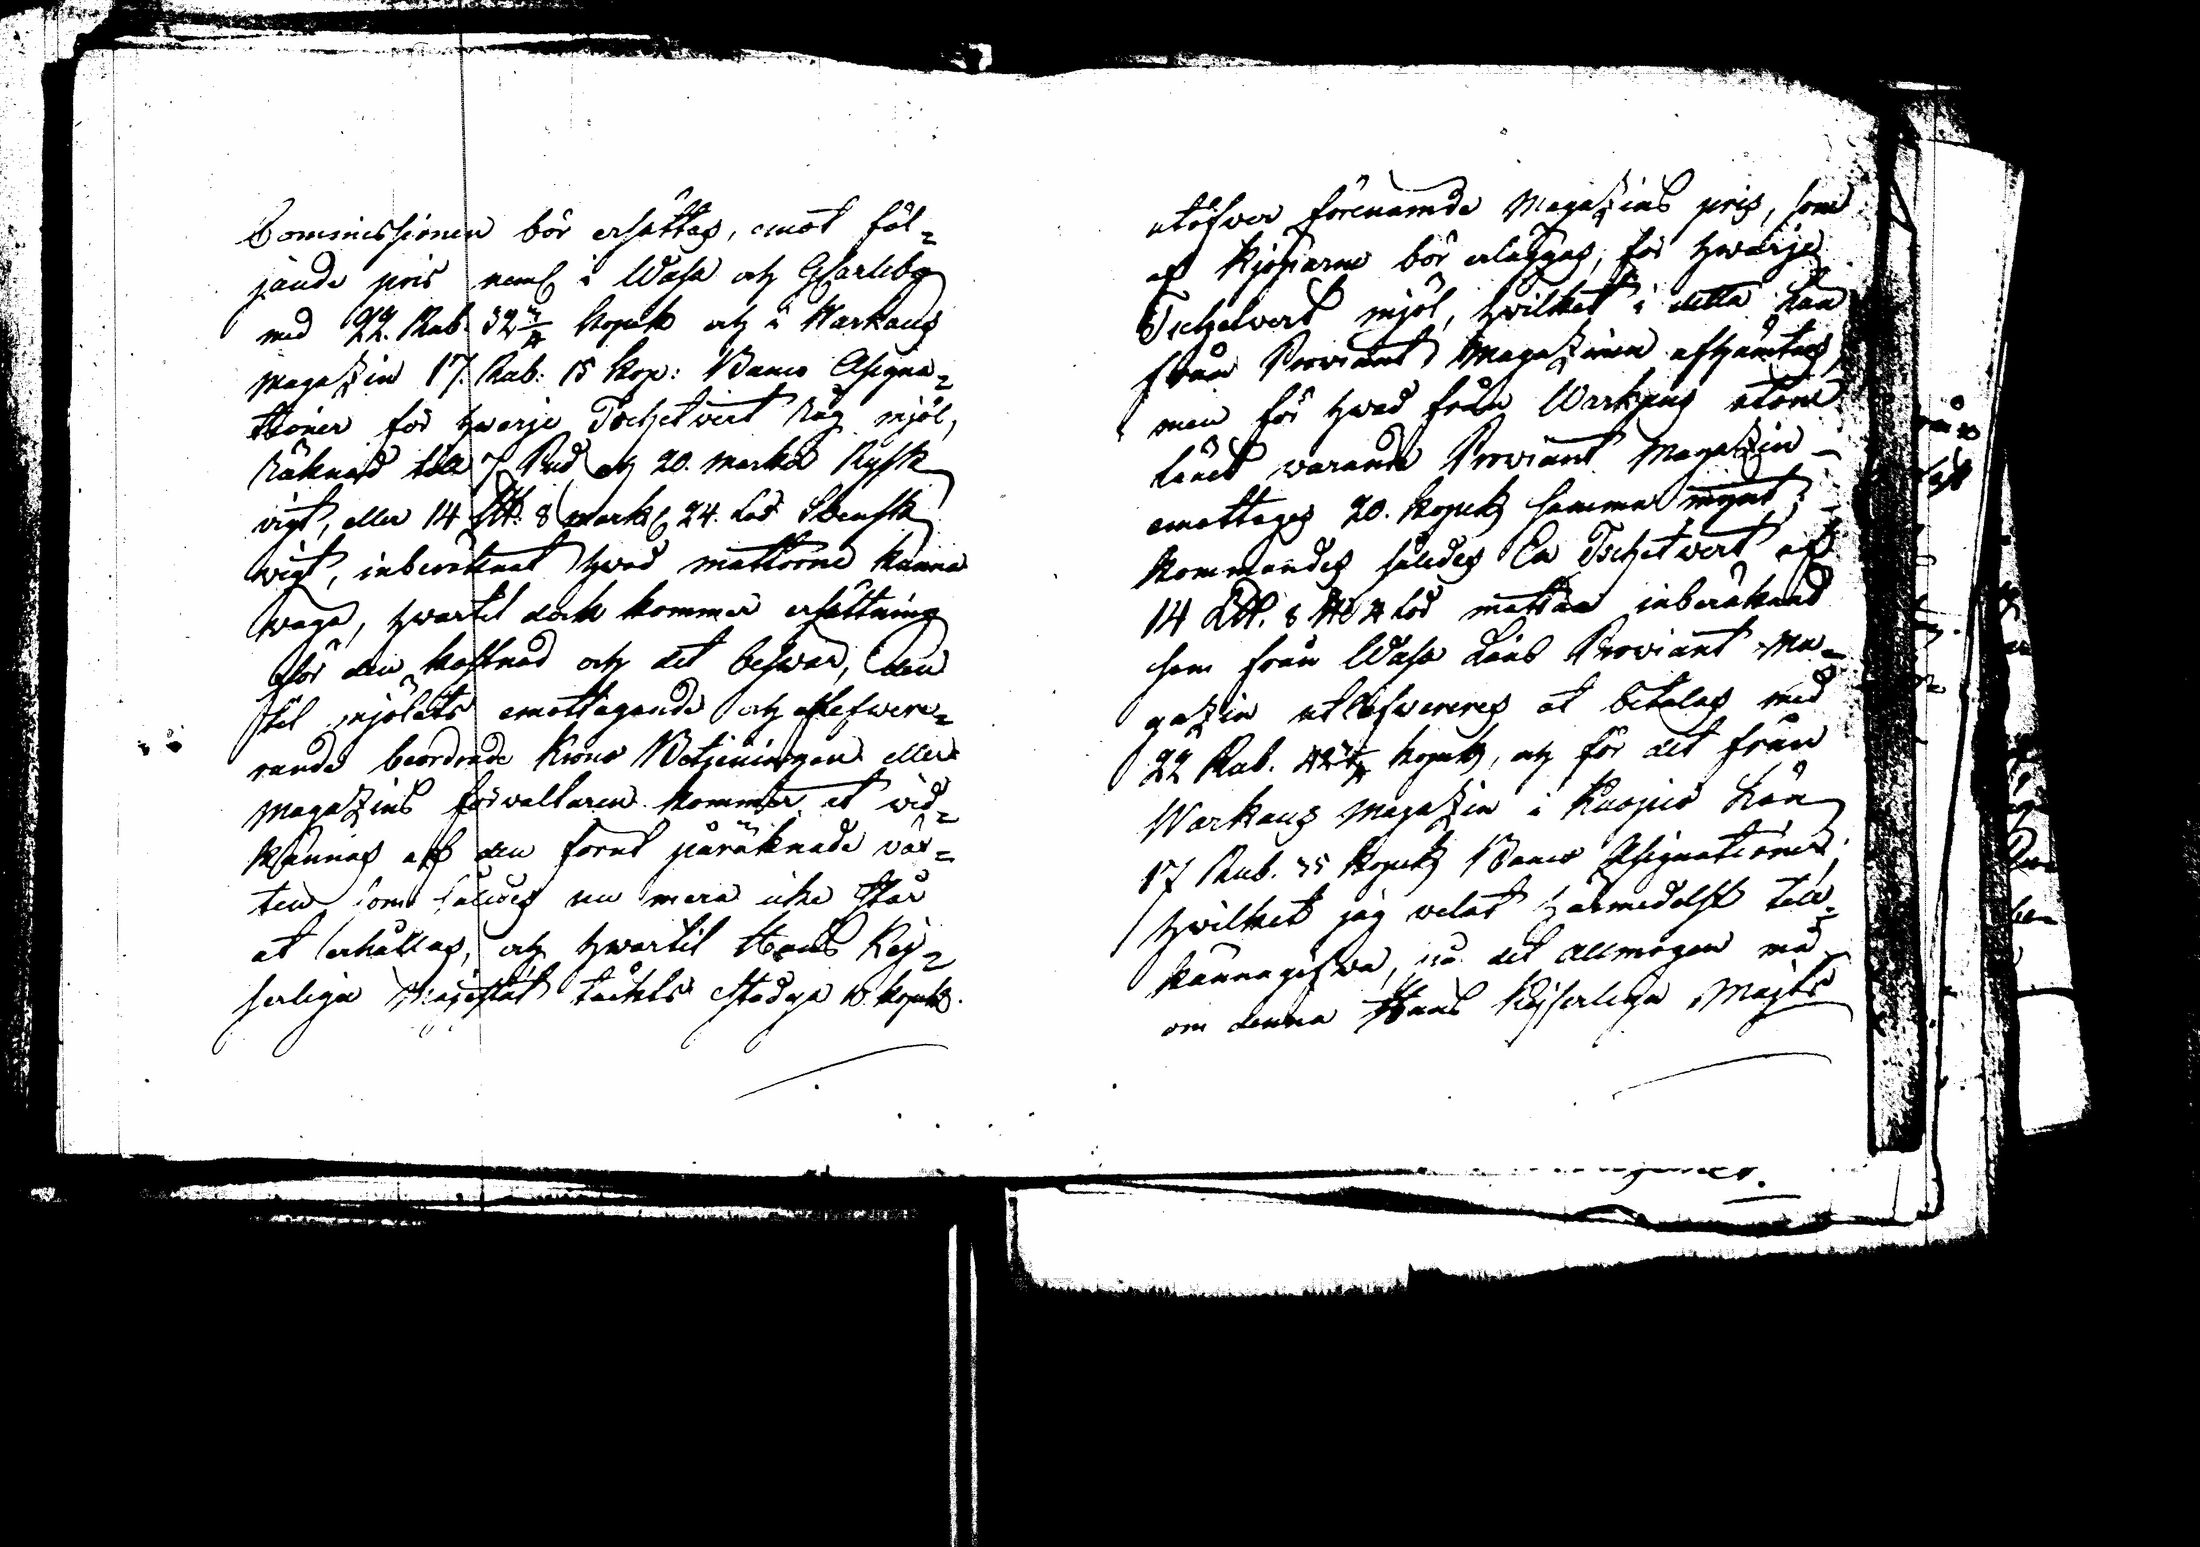 Commissionen bör ersättas, emot föl-
jande pris neml i Wasa och GCarleby
med 22. Rub. 32 3/4 Kopek och i Warkaus
Magazin 17. Rub: 15 Kop: Banco Assigna-
tioner för hwarje Tschetwert Råg mjöl,
räknad till 7 Pud och 20. marker Rysk
vigt, eller 14 L℔: 8 mark 24. Lod Svensk
vigt, inberäknat hwad mattorne kunna
wäga, hwartil dock kommer ersättning
för den kostnad och det beswär, den
til mjölets emottagande och aflefwere-
rande beordrade Krono Betjeningen eller
Magazins förvaltaren kommer at vid-
kännas af den förut påräknade väx-
ten som således nu mera icke står
at erhållas, och hwartil Hans Kej-
serliga Majestät täckts stadga 10. Kopek
utöfwer förenämde Magazins pris, som
af Köparne bör erläggas, för hwarje
Tschetwert mjöl, hwilket i detta Län
från Proviant Magazinen afhämtas,
men för hwad från Warkaus utom
länet warande Proviant Magazin
emottages 20. Kopek samma mynt;
kommandes således En Tschetwert af
14 L℔. 8 Lod mattan inberäknad
som från Wasa Läns Proviant Ma-
gazin utlefwereres at betalas med
22 Rub. Kopek, och för det från
Warkaus Magazin i Kuopio Län
17 Rub. 35 Kopek Banco Assignationer;
hwilket jag welat härmedelst till-
kännagifwa, på det Allmogen må
om denna Hans Kejserliga Majts